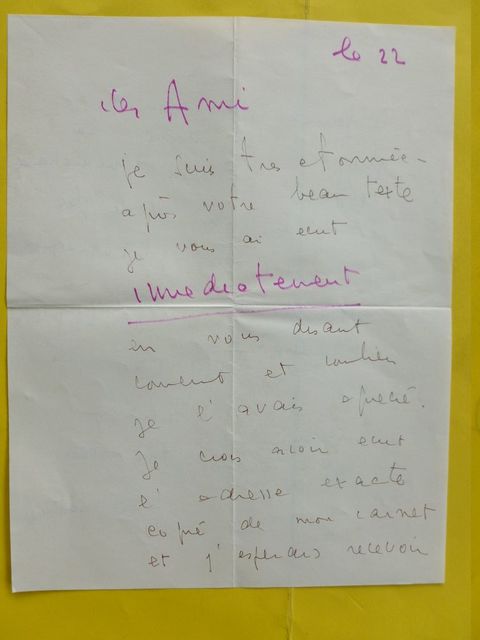 le 22
cher Ami
je suis tres etonnée -
après votre beau texte
je vous ai ecrit
immediatement
en vous disant
comment et combien
je l'avais apprecié.
je crois avoir ecrit
l'adresse exacte
copié de mon carnet
et j'esperais recevoir